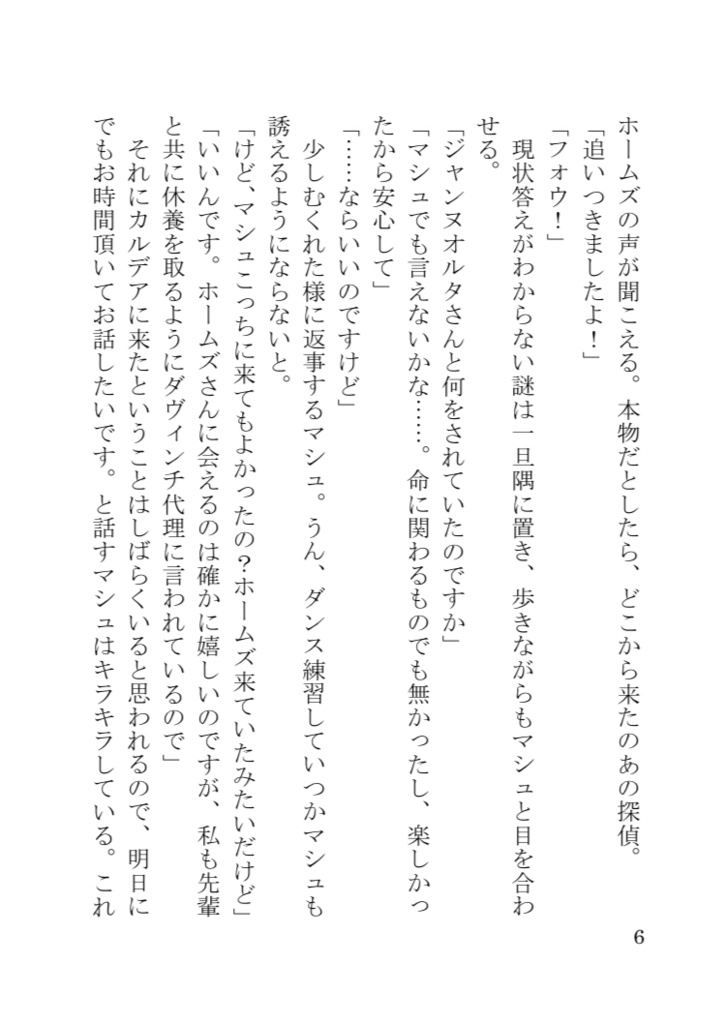 ホームズの声が聞こえる。本物だとしたら、どこから来たのあの探偵。
「追いつきましたよ！」
「フォウ！」
　現状答えがわからない謎は一旦隅に置き、歩きながらもマシュと目を合わ
せる。
「ジャンヌオルタさんと何をされていたのですか」
「マシュでも言えないかな……。命に関わるものでも無かったし、楽しかっ
たから安心して」
「……ならいいのですけど」
　少しむくれた様に返事するマシュ。うん、ダンス練習していつかマシュも
誘えるようにならないと。
「けど、マシュこっちに来てもよかったの？ホームズ来ていたみたいだけど」
「いいんです。ホームズさんに会えるのは確かに嬉しいのですが、私も先輩
と共に休養を取るようにダヴィンチ代理に言われているので」
　それにカルデアに来たということはしばらくいると思われるので、明日に
でもお時間頂いてお話したいです。と話すマシュはキラキラしている。これ
6